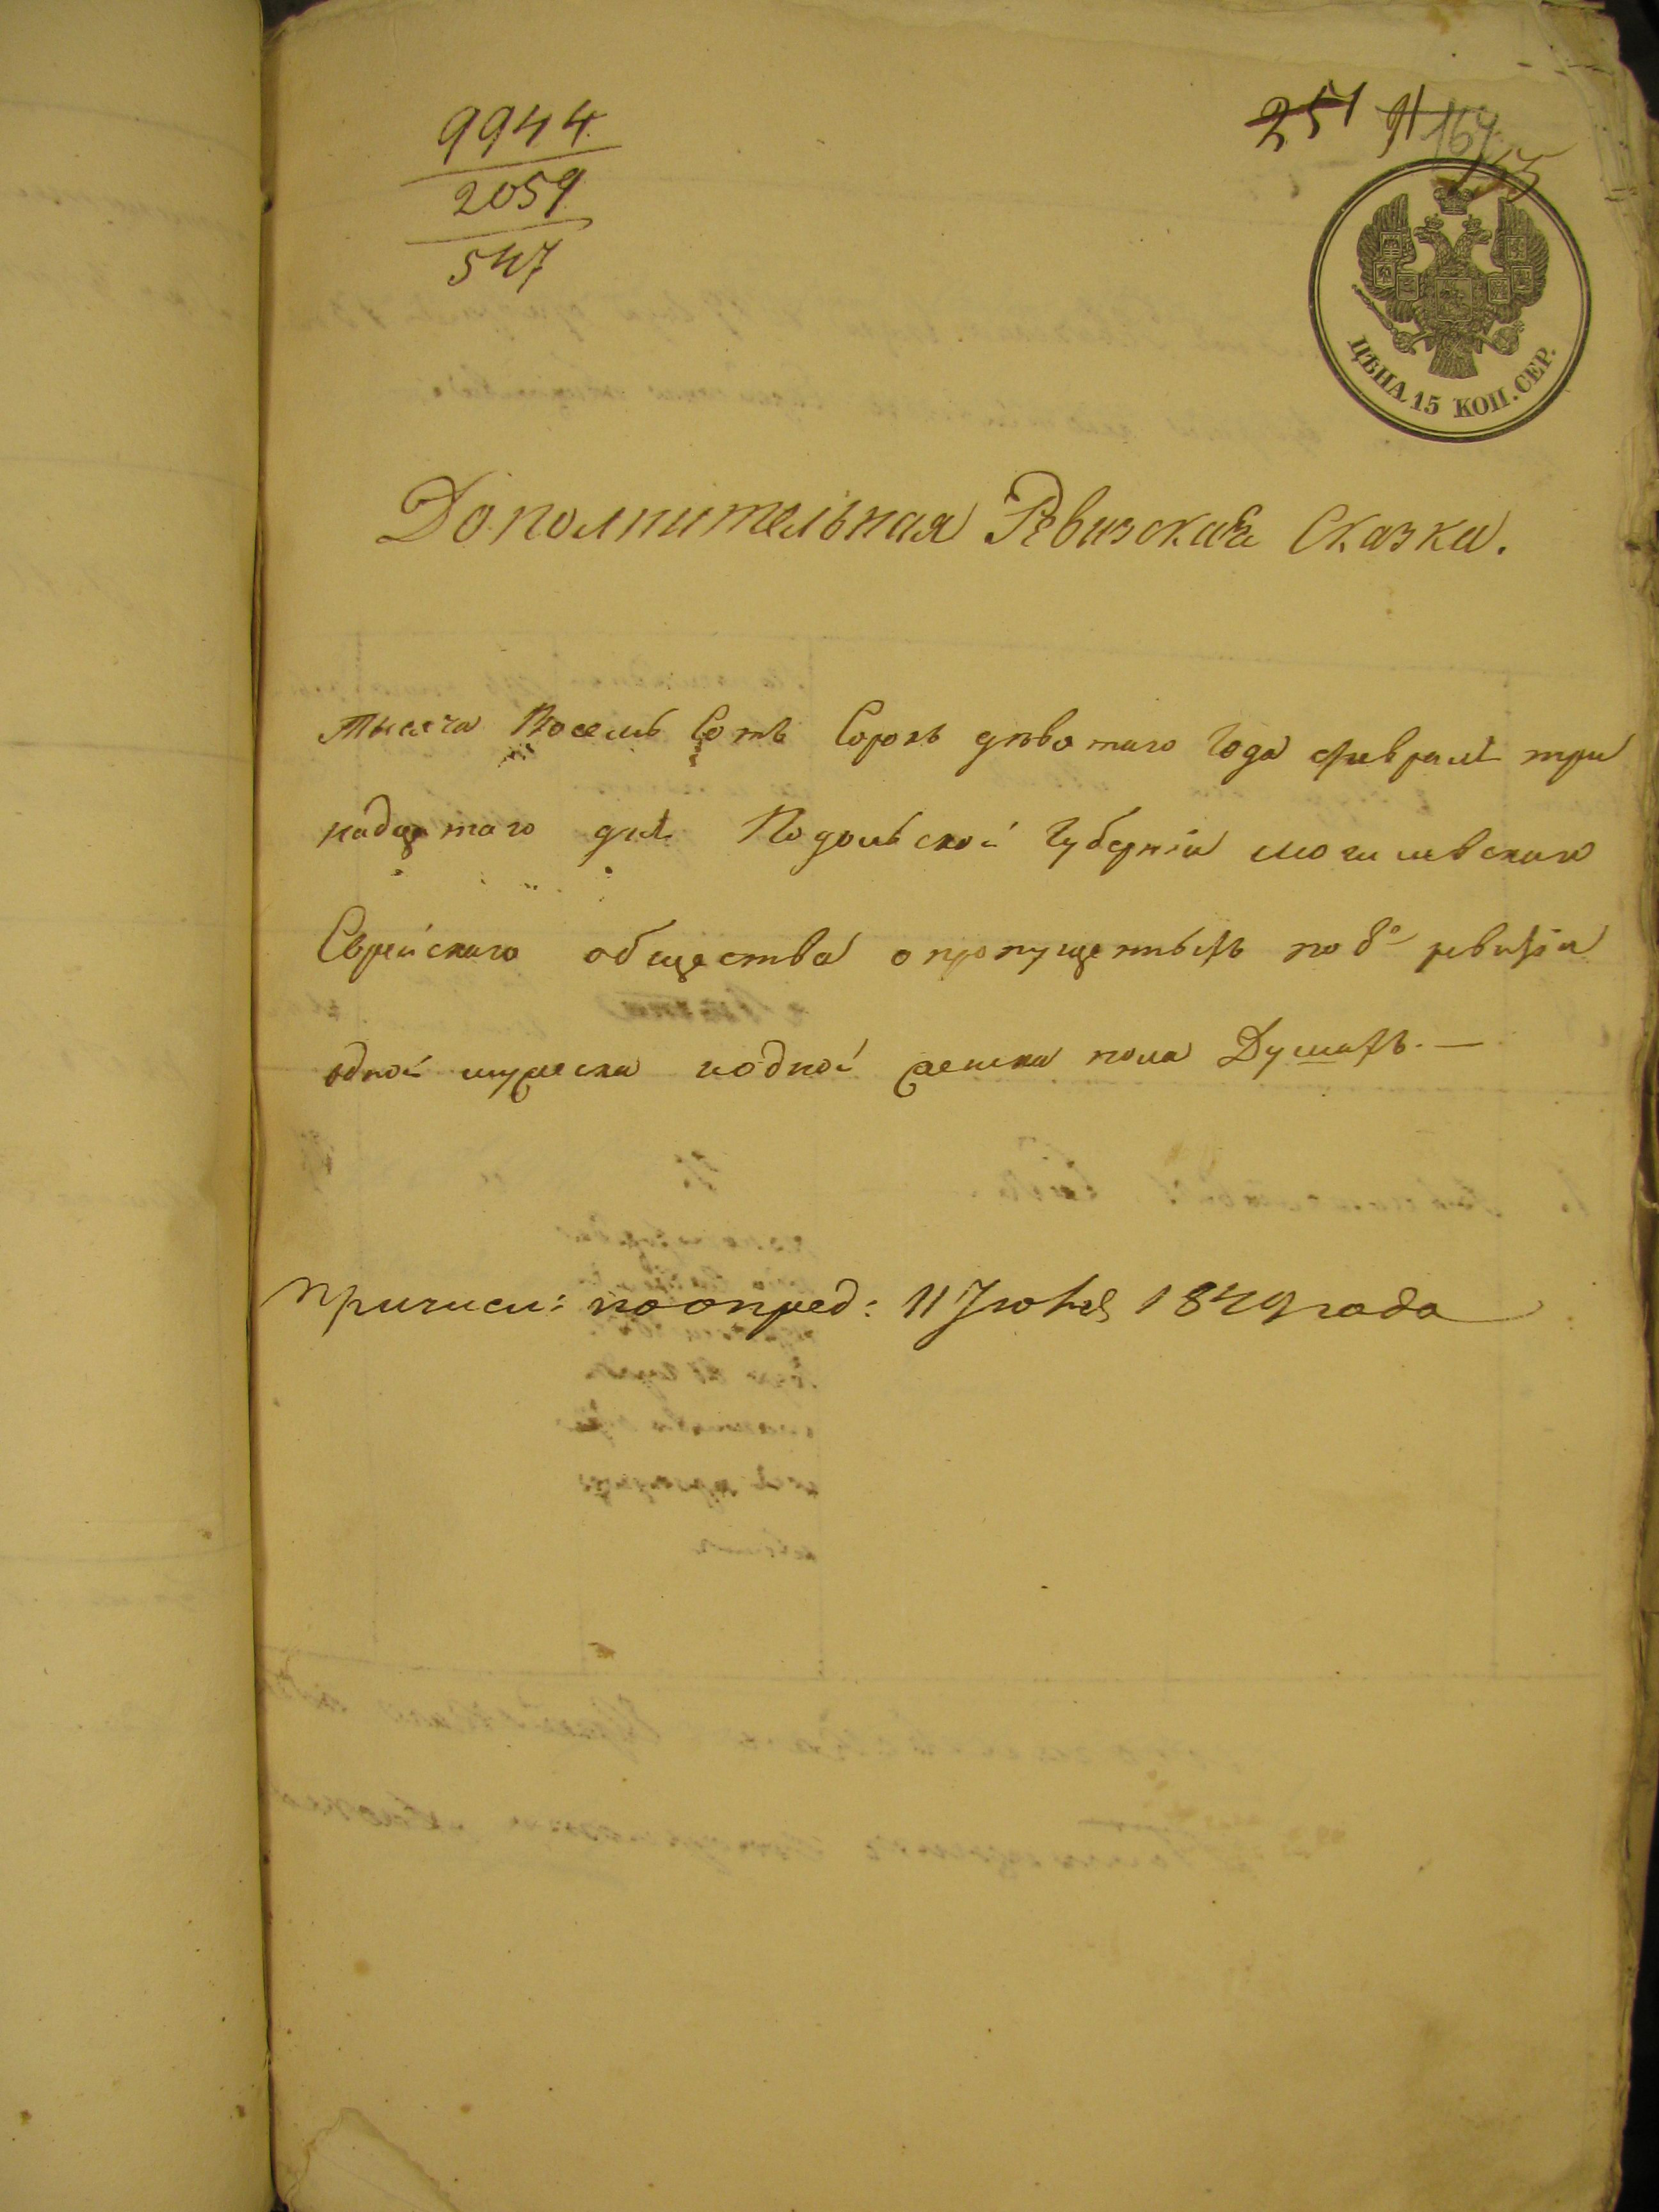 9944
2059
547
251 91 164
155
ЦѢНА 15 КОП. СЕР.
Дополнительная Ревизская Сказка.
Тысяча Восемь Сотъ Сорокъ девятаго Года февраля три
надцатаго дня Подольской Губерніи могилевскаго
Еврейскаго общества о пропущенныхъ по 8й ревизіи
одной мужеска и одной женска пола Душахъ. —
причисл: по опред: 11 Іюня 1849 года